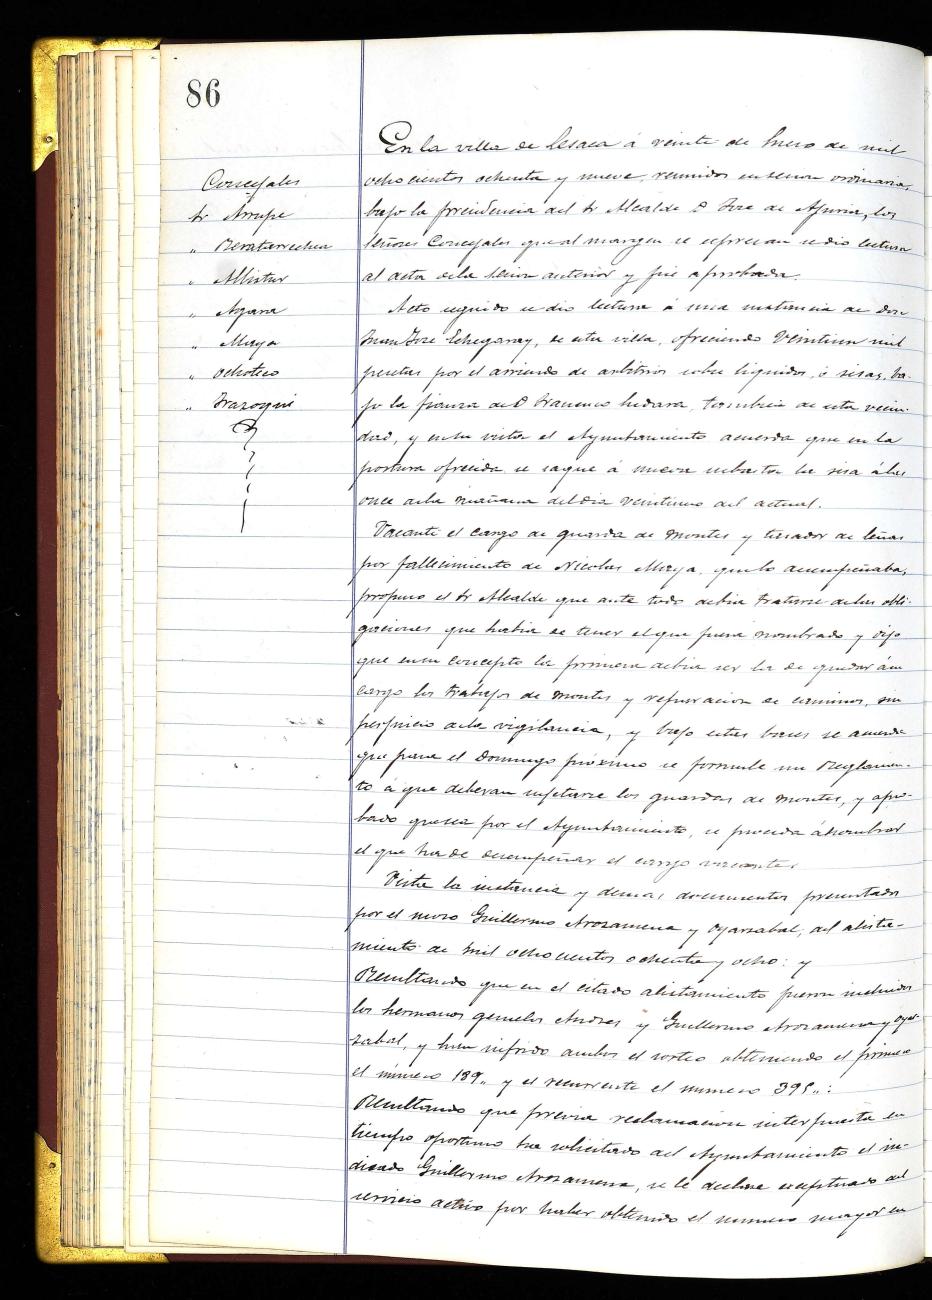 86
Concejales
Sr Arrupe
" Beratarrechea
" Albistur
" Apara
" Maya
" Ochoteco
" Irazoqui
En la villa de Lesaca á veinte de Enero de mil
ochocientos ochenta y nueve, reunidos en sesion ordinaria
bajo la presidencia del Sr Alcalde D. Jose de los
Señores Concejales que al margen se espresan se dio lectura
al acta de la sesion anterior y fué aprobada.
Acto seguido se dio lectura á una instancia de Don
Juan Jose Echegaray, de esta villa, ofreciendo Veintiun mil
pesetas por el arriendo de arbitrios sobre liquidos, ó sisas, ba-
jo la fianza de D Francisco tambien de esta vecin-
dad, y en su vista el Ayuntamiento acuerda que en la
postura ofrecida se saque á nueva subasta la sisa á las
once de la mañana del dia veintiuno del actual.
Vacante el cargo de guarda de montes y tasador de leñas
por fallecimiento de Nicolas Maya, que lo desempeñaba,
propuso el Sr Alcalde que ante todo debia tratarse de las obli-
gaciones que habia de tener el que fuera nombrado y dijo
que en su concepto la primera debia ser la de quedar á su
cargo los trabajos de montes y reparacion de caminos, sin
perjuicio de la vigilancia, y bajo estas bases se acuerda
que para el Domingo próximo se formule un Reglamen-
to á que deberan sujetarse los guardas de montes, y apro-
bado que sea por el Ayuntamiento, se proceda á nombrar
el que ha de desempeñar el cargo vacante.
Vista la instancia y demas documentos presentados
por el mozo Guillermo Arozamena y Oyarzabal, del alista-
miento de mil ochocientos ochenta y ocho: y
Resultando que en el citado alistamiento fueron incluidos
los hermanos gemelos Andres y Guillermo Arozamena y Oyar-
zabal, y han sufrido ambos el sorteo obteniendo el primero
el número 189" y el recurrente el numero 395":
Resultando que previa reclamacion interpuesta en
tiempo oportuno ha solicitado del Ayuntamiento el in-
dicado Guillermo Arozamena, se le declare esceptuado del
servicio activo por haber obtenido el numero mayor en